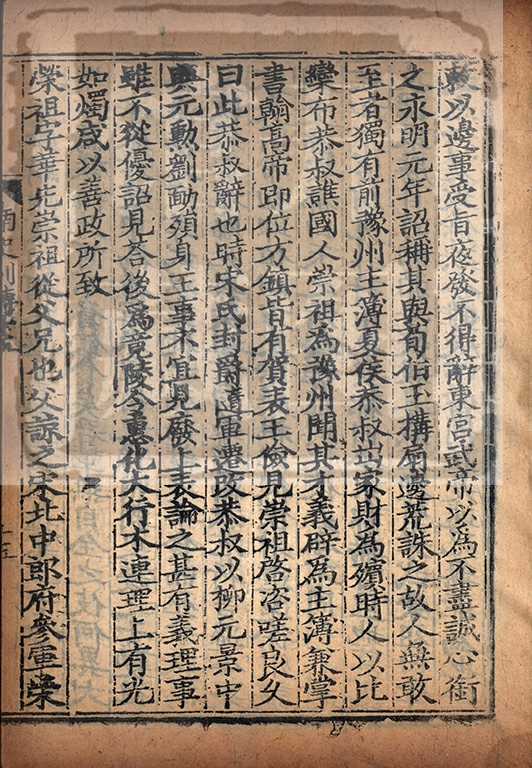 敕以邊事受旨夜發不得辭東宮武帝以為不盡誠心銜
之永明元年詔稱其與荀伯玉搆扇邊荒誅之故人無敢
至者獨有前豫州主簿夏侯恭叔出家財為殯時人以比
欒布恭叔譙國人崇祖為豫州聞其才義辟為主簿兼掌
書翰高帝即位方鎮皆有賀表王儉見崇祖啓咨嗟良久
曰此恭叔辭也時宋氏封爵隨軍遷改恭叔以柳元景中
興元勳劉勔殞身王事不宜見廢上表論之甚有義理事
雖不從優詔見荅後為竟陵令惠化大行木連理上有光
如燭咸以善政所致
榮祖字華先崇祖從父兄也父諒之宋北中郎府參軍榮